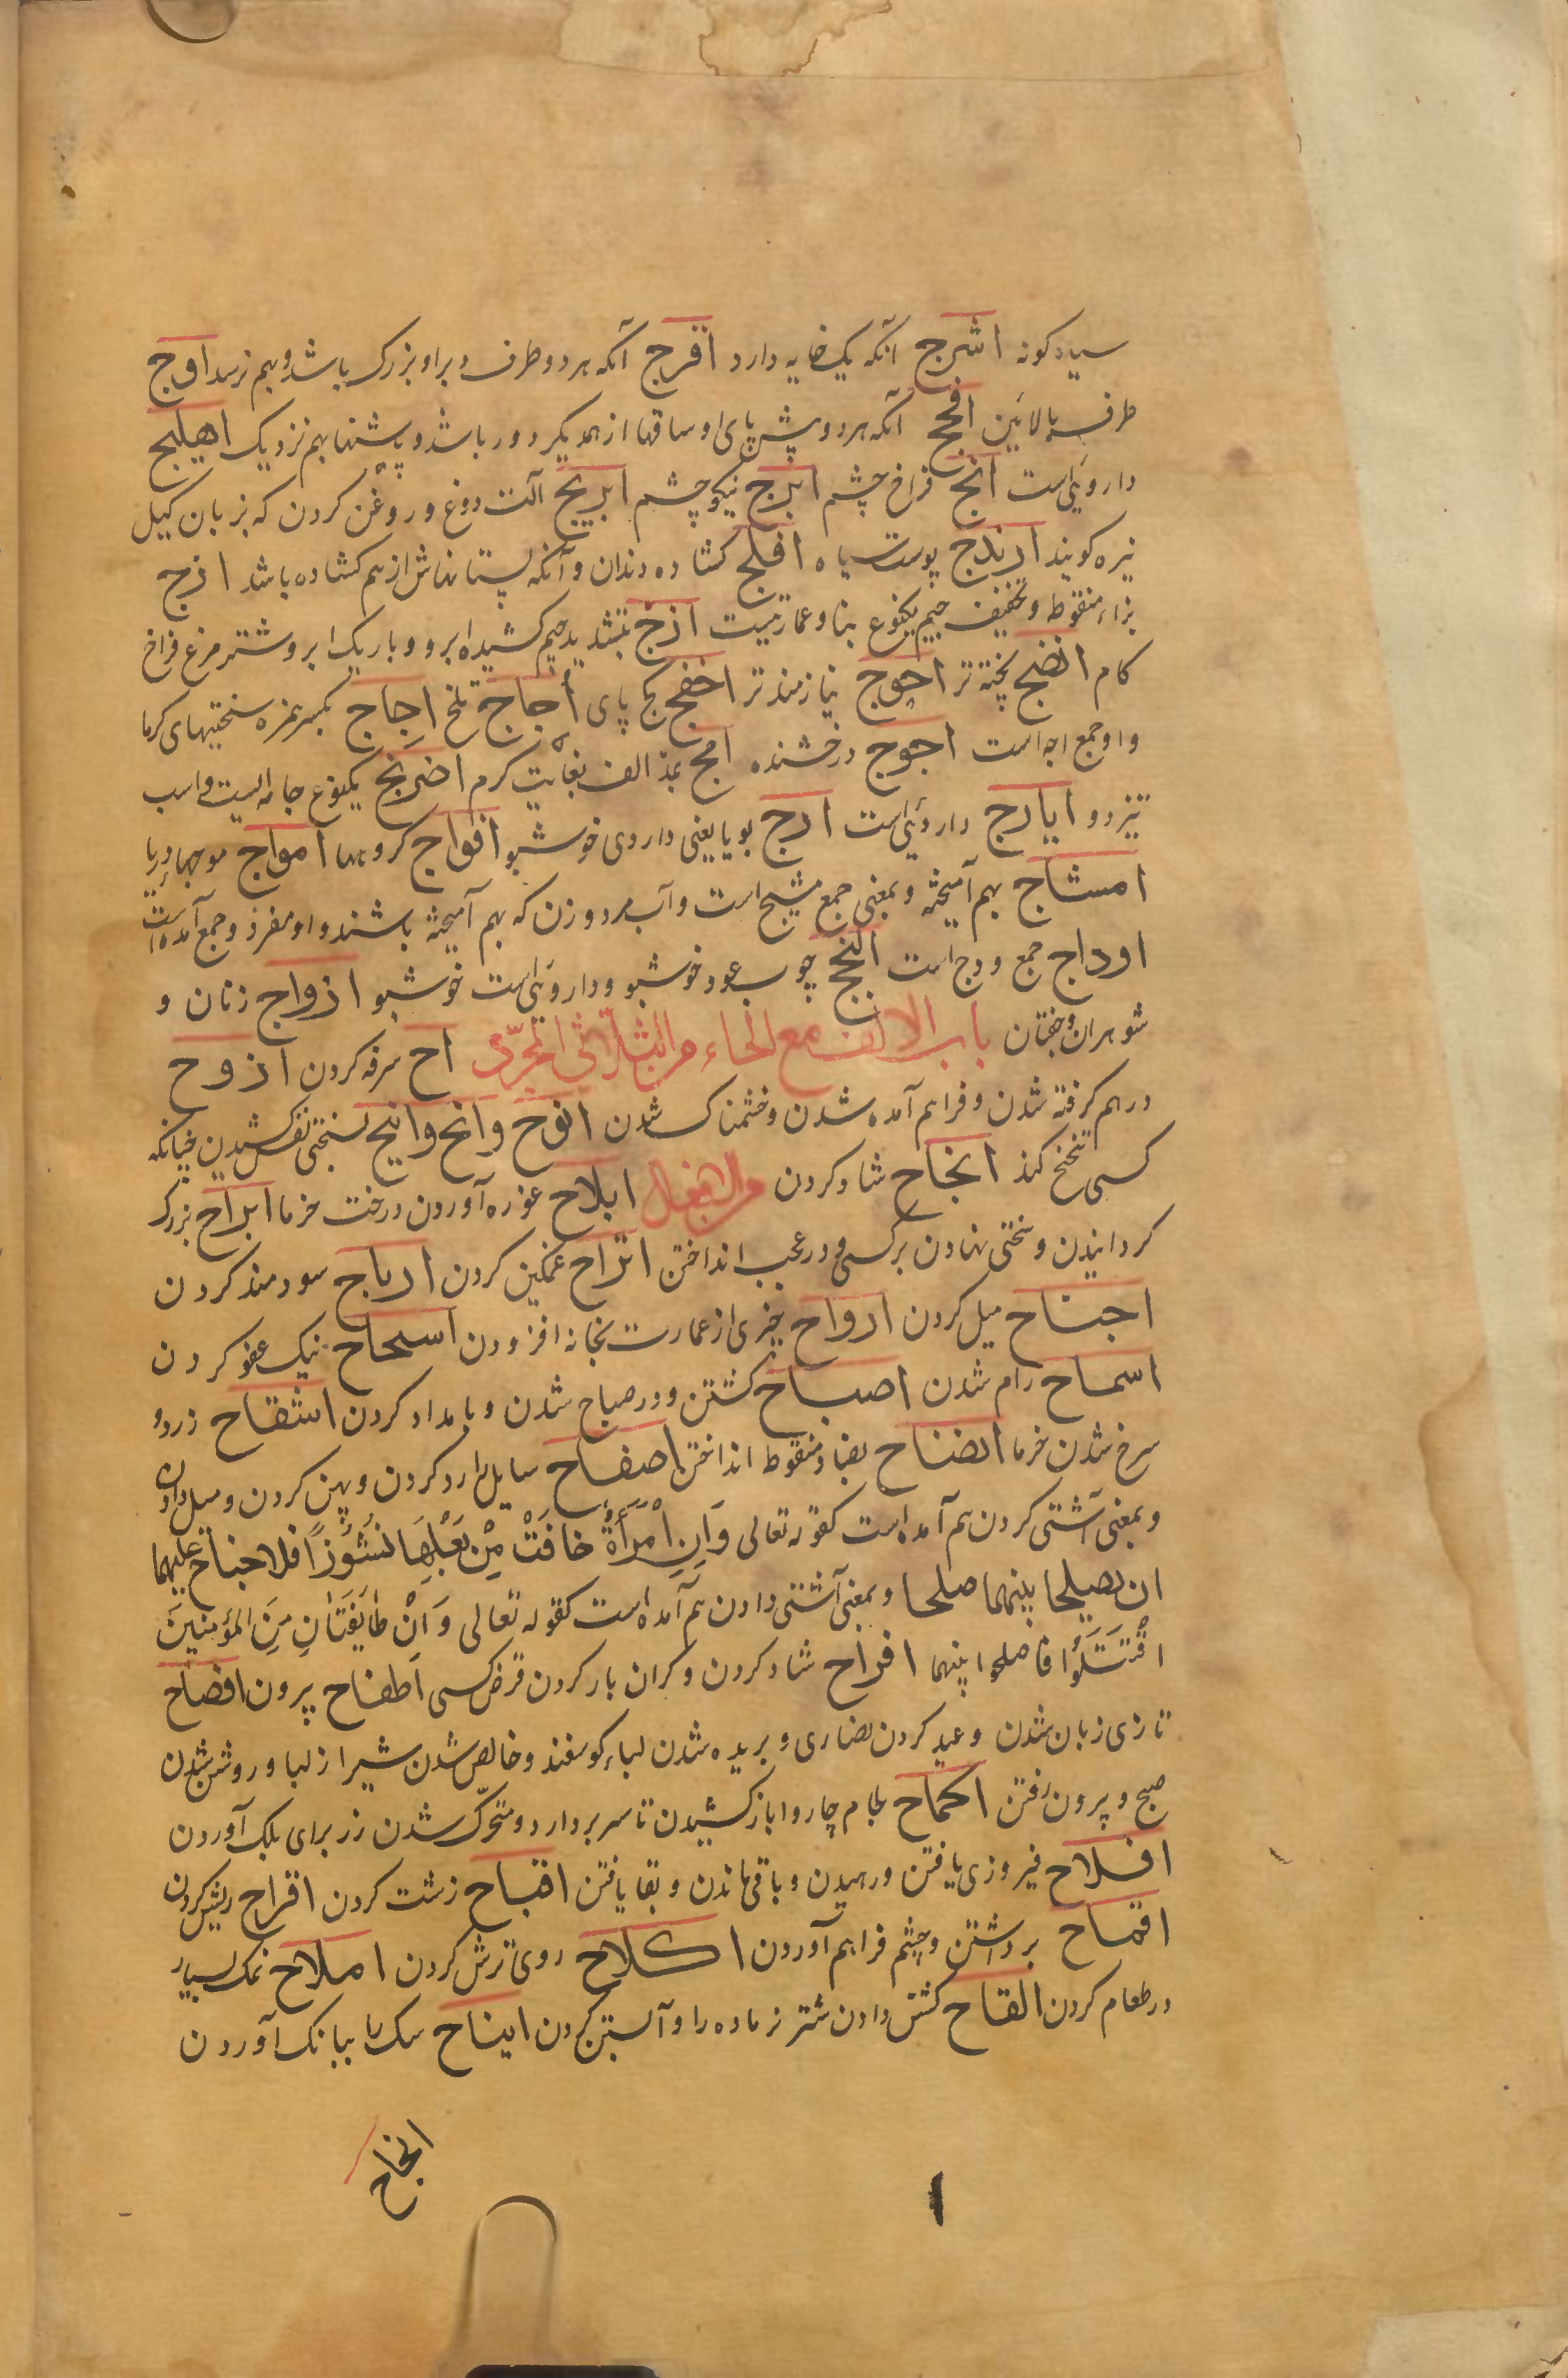 سیاه کونه اشرج آنکه یک خایه دارد افرج آنکه هر دو طرف دبر او بزرک باشد و بهم نرسد اوج
طرف بالائین افحج آنکه هر دو پیش پای او و ساقها از همدیکر دور باشد و پاشنها بهم نزدیک اهلیلج
داروئی است انج فراخ چشم ابرج نیکو چشم ابریج آلت دوغ و روغن کردن که بزبان کیل
نیره کویند ارندج پوست سیاه افلج کشاده دندان و آنکه پستانهاش از هم کشاده باشد ازج
بزاء منقوط و تخفیف جیم یکنوع بنا و عمارتیست ازج بتشدید جیم کشیده ابرو و باریک ابرو و شترمرغ فراخ
کام انضج پخته تر احوج نیازمند تر اخفج کج پای أجاج تلخ اجاج بکسر همزه سختیهای کرما
و او جمع اجه است اجوج درخشنده امج بمد الف بغایت کرم اضریج یکنوع جامه ایست و اسب
تیز دو ایارج داروئی است ارج بویا یعنی داروی خوشبو افواج کروهها امواج موجهاء دریا
امشاج بهم آمیخته و بمعنی جمع مشیج است و آب مرد و زن که بهم آمیخته باشند و او مفرد و جمع آمده است
اوداج جمع ودج است النجج چوب عود خوشبو و داروئی است خوشبو ازواج زنان و
شوهران و جفتان باب الالف مع الحاء من الثلاثی المجرّد اح سرفه کردن ازوح
درهم کرفته شدن و فراهم آمده شدن و خشمناک شدن انوح و انح و انیح بسختی نفس کشیدن چنانکه
کسی تنحنح کند انجاح شاد کردن من الافعال ابلاح غوره آوردن درخت خرما ابراح بزرک
کردانیدن و سختی نهادن بر کسی و در عجب انداختن اتراح غمکین کردن ارباح سودمند کردن
اجناح میل کردن ارواح چیزی از عمارت بخانه افزودن اسجاح نیک عفو کردن
اسماح رام شدن اصباح کشتن و در صباح شدن و بامداد کردن اشقاح زرد و
سرخ شدن خرما انضاح بضاد منقوط انداختن اصفاح سایل را رد کردن و پهن کردن و میل دادن
و بمعنی آشتی کردن هم آمده است کقوله تعالی وَاِنِ امْرَأَةٌ خافَتْ مِنْ بَعْلِهَا نُشُوزاً فلا جناح علیهما
ان یصلحا بینهما صلحا و بمعنی آشتی دادن هم آمده است کقوله تعالی وَ اِنْ طایِفَتانِ مِنَ المؤمنین
اقْتَتَلُوْا فاصلحوا بینهما افراح شاد کردن و کران بار کردن قرض کسی اطفاح پر کردن افصاح
تازی زبان شدن و عید کردن نصاری و بریده شدن لباء کوسفند و خالص شدن شیر از لبا و روشن شدن
صبح و بیرون رفتن اکماح لجام چاروا بازکشیدن تا سر بردارد و متحرّک شدن رز برای بلک آوردن
افلاح فیروزی یافتن و رهیدن و باقی ماندن و بقا یافتن اقباح زشت کردن اقراح ریش کردن
اقماح برداشتن و چشم فراهم آوردن اکلاح روی ترش کردن املاح نمک بسیار
در طعام کردن القاح کشن دادن شتر نر ماده را و آبستن کردن ایناح سک را ببانک آوردن
انجاح